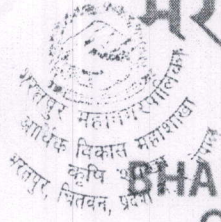 भर
भरतपुर महानगरपालिका
आर्थिक विकास महाशाखा
कृषि
भरतपुर, चितवन,
BHA